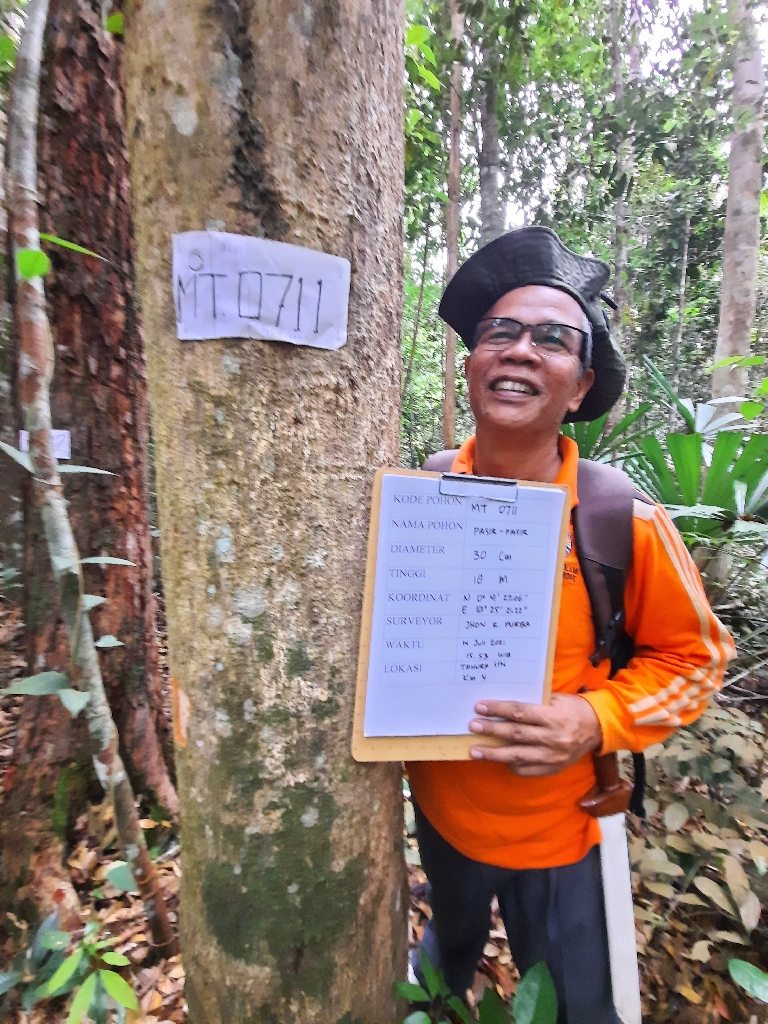 MT. 0711
KODE POHON MT 0711
NAMA POHON PASIR-PASIR
DIAMETER 30 Cm
TINGGI 18 M
KOORDINAT N 0° 41'
E 101° 25' 21.22"
SURVEYOR JHON R. PURBA
WAKTU JULI 2021
15.53 WIB
LOKASI TAHURA
KM 4